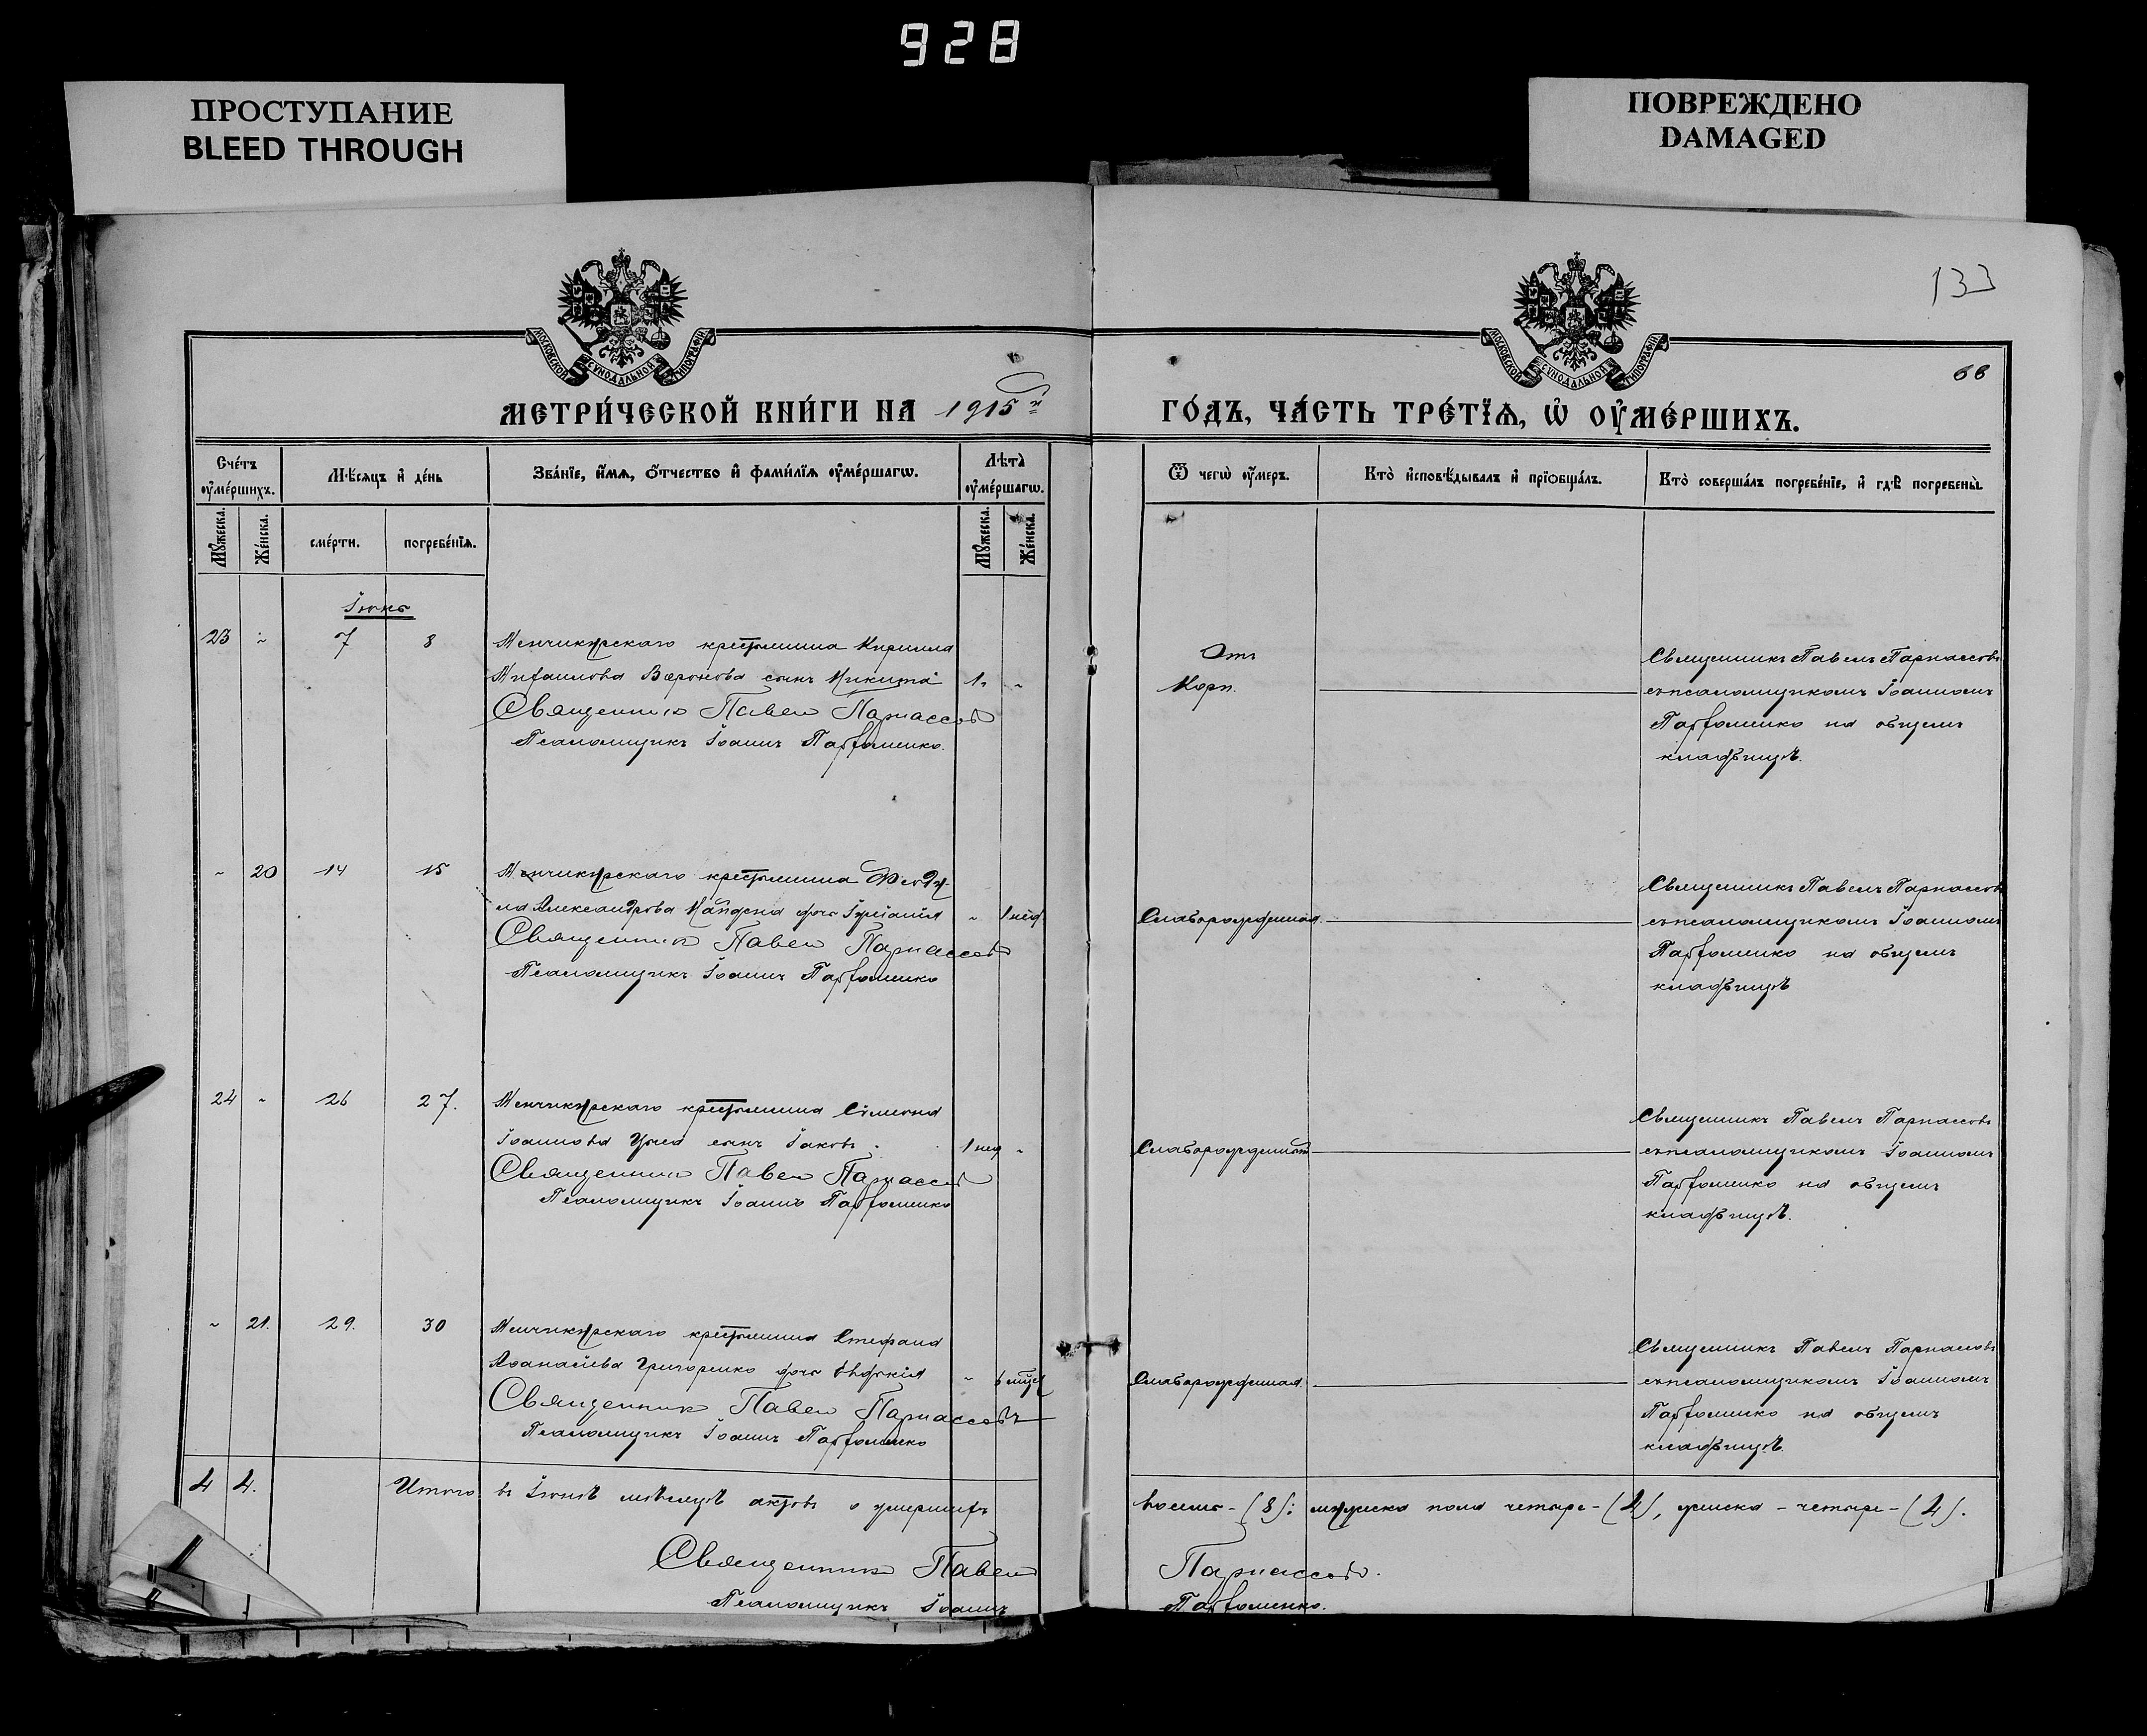 928
ПРОСТУПАНИЕ
BLEED THROUGH
ПОВРЕЖДЕНО
DAMAGED
133
66
МОСКОВСКОЙ СУНОДАЛЬНОЙ ТИПОГРАФІИ
МОСКОВСКОЙ СУНОДАЛЬНОЙ ТИПОГРАФІИ
МЕТРИ́ЧЕСКОЙ КНИ́ГИ НА 1915й
ГО́ДЪ, ЧА́СТЬ ТРЕ́ТЇѦ, Ѡ҆ ОУ҆МЕ́РШИХЪ.
Сче́тъ оу҆ме́ршихъ.
Мѣ́сяцъ и҆ де́нь
Зва́нїе, и҆́мѧ, ѻ҆́тчество и҆ фами́лїѧ оу҆ме́ршагѡ.
Лѣ́та оу҆ме́ршагѡ.
Ѿ чегѡ̀ оу҆́меръ.
Кто̀ и҆сповѣ́дывалъ и҆ прїѡбща́лъ.
Кто̀ соверша́лъ погребе́нїе, и҆ гдѣ̀ погребены̀.
Мꙋ́жеска.
Же́нска.
сме́рти.
погребе́нїѧ.
Мꙋ́жеска.
Же́нска.
Іюнь
23 ~ 7 8 Менчикурскаго крестьянина Кирилла
Михаилова Воронова сынъ Никита 1. ~
Священник Павел Парнассов
Псаломщикъ Іоаннъ Парфоменко.
Отъ
Кори.
Священникъ Павелъ Парнассовъ
съ псаломщикомъ Іоанномъ
Парфоменко на общемъ
кладбищѣ.
~ 20 14 15 Менчикурскаго крестьянина
Александрова дочь ~ 1 нед.
Священник Павел Парнассов
Псаломщикъ Іоаннъ Парфоменко
Слаборожденная.
Священникъ Павелъ Парнассовъ
съ псаломщикомъ Іоанномъ
Парфоменко на общемъ
кладбищѣ
24 ~ 26 27. Менчикурскаго крестьянина Сімеона
Іоаннова сынъ Іаковъ. 1 нед ~
Священник Павел Парнассов
Псаломщикъ Іоаннъ Парфоменко
Слаборожденный
Священникъ Павелъ Парнассовъ
съ псаломщикомъ Іоанномъ
Парфоменко на общемъ
кладбищѣ.
~ 21. 29. 30 Менчикурскаго крестьянина Стефана
Аѳанасіева Григоренко дочь Евдокія ~ 6 мѣс.
Священник Павел Парнассовъ
Псаломщикъ Іоаннъ Парфоменко
Слаборожденная.
Священникъ Павелъ Парнассовъ
съ псаломщикомъ Іоанномъ
Парфоменко на общемъ
кладбищѣ.
4 4. Итого въ Іюнѣ мѣсяцѣ актовъ о умершихъ восемь - (8): мужеска пола четыре - (4), женска - четыре - (4).
Священник Павел Парнассов.
Псаломщикъ Іоаннъ Парфоменко.